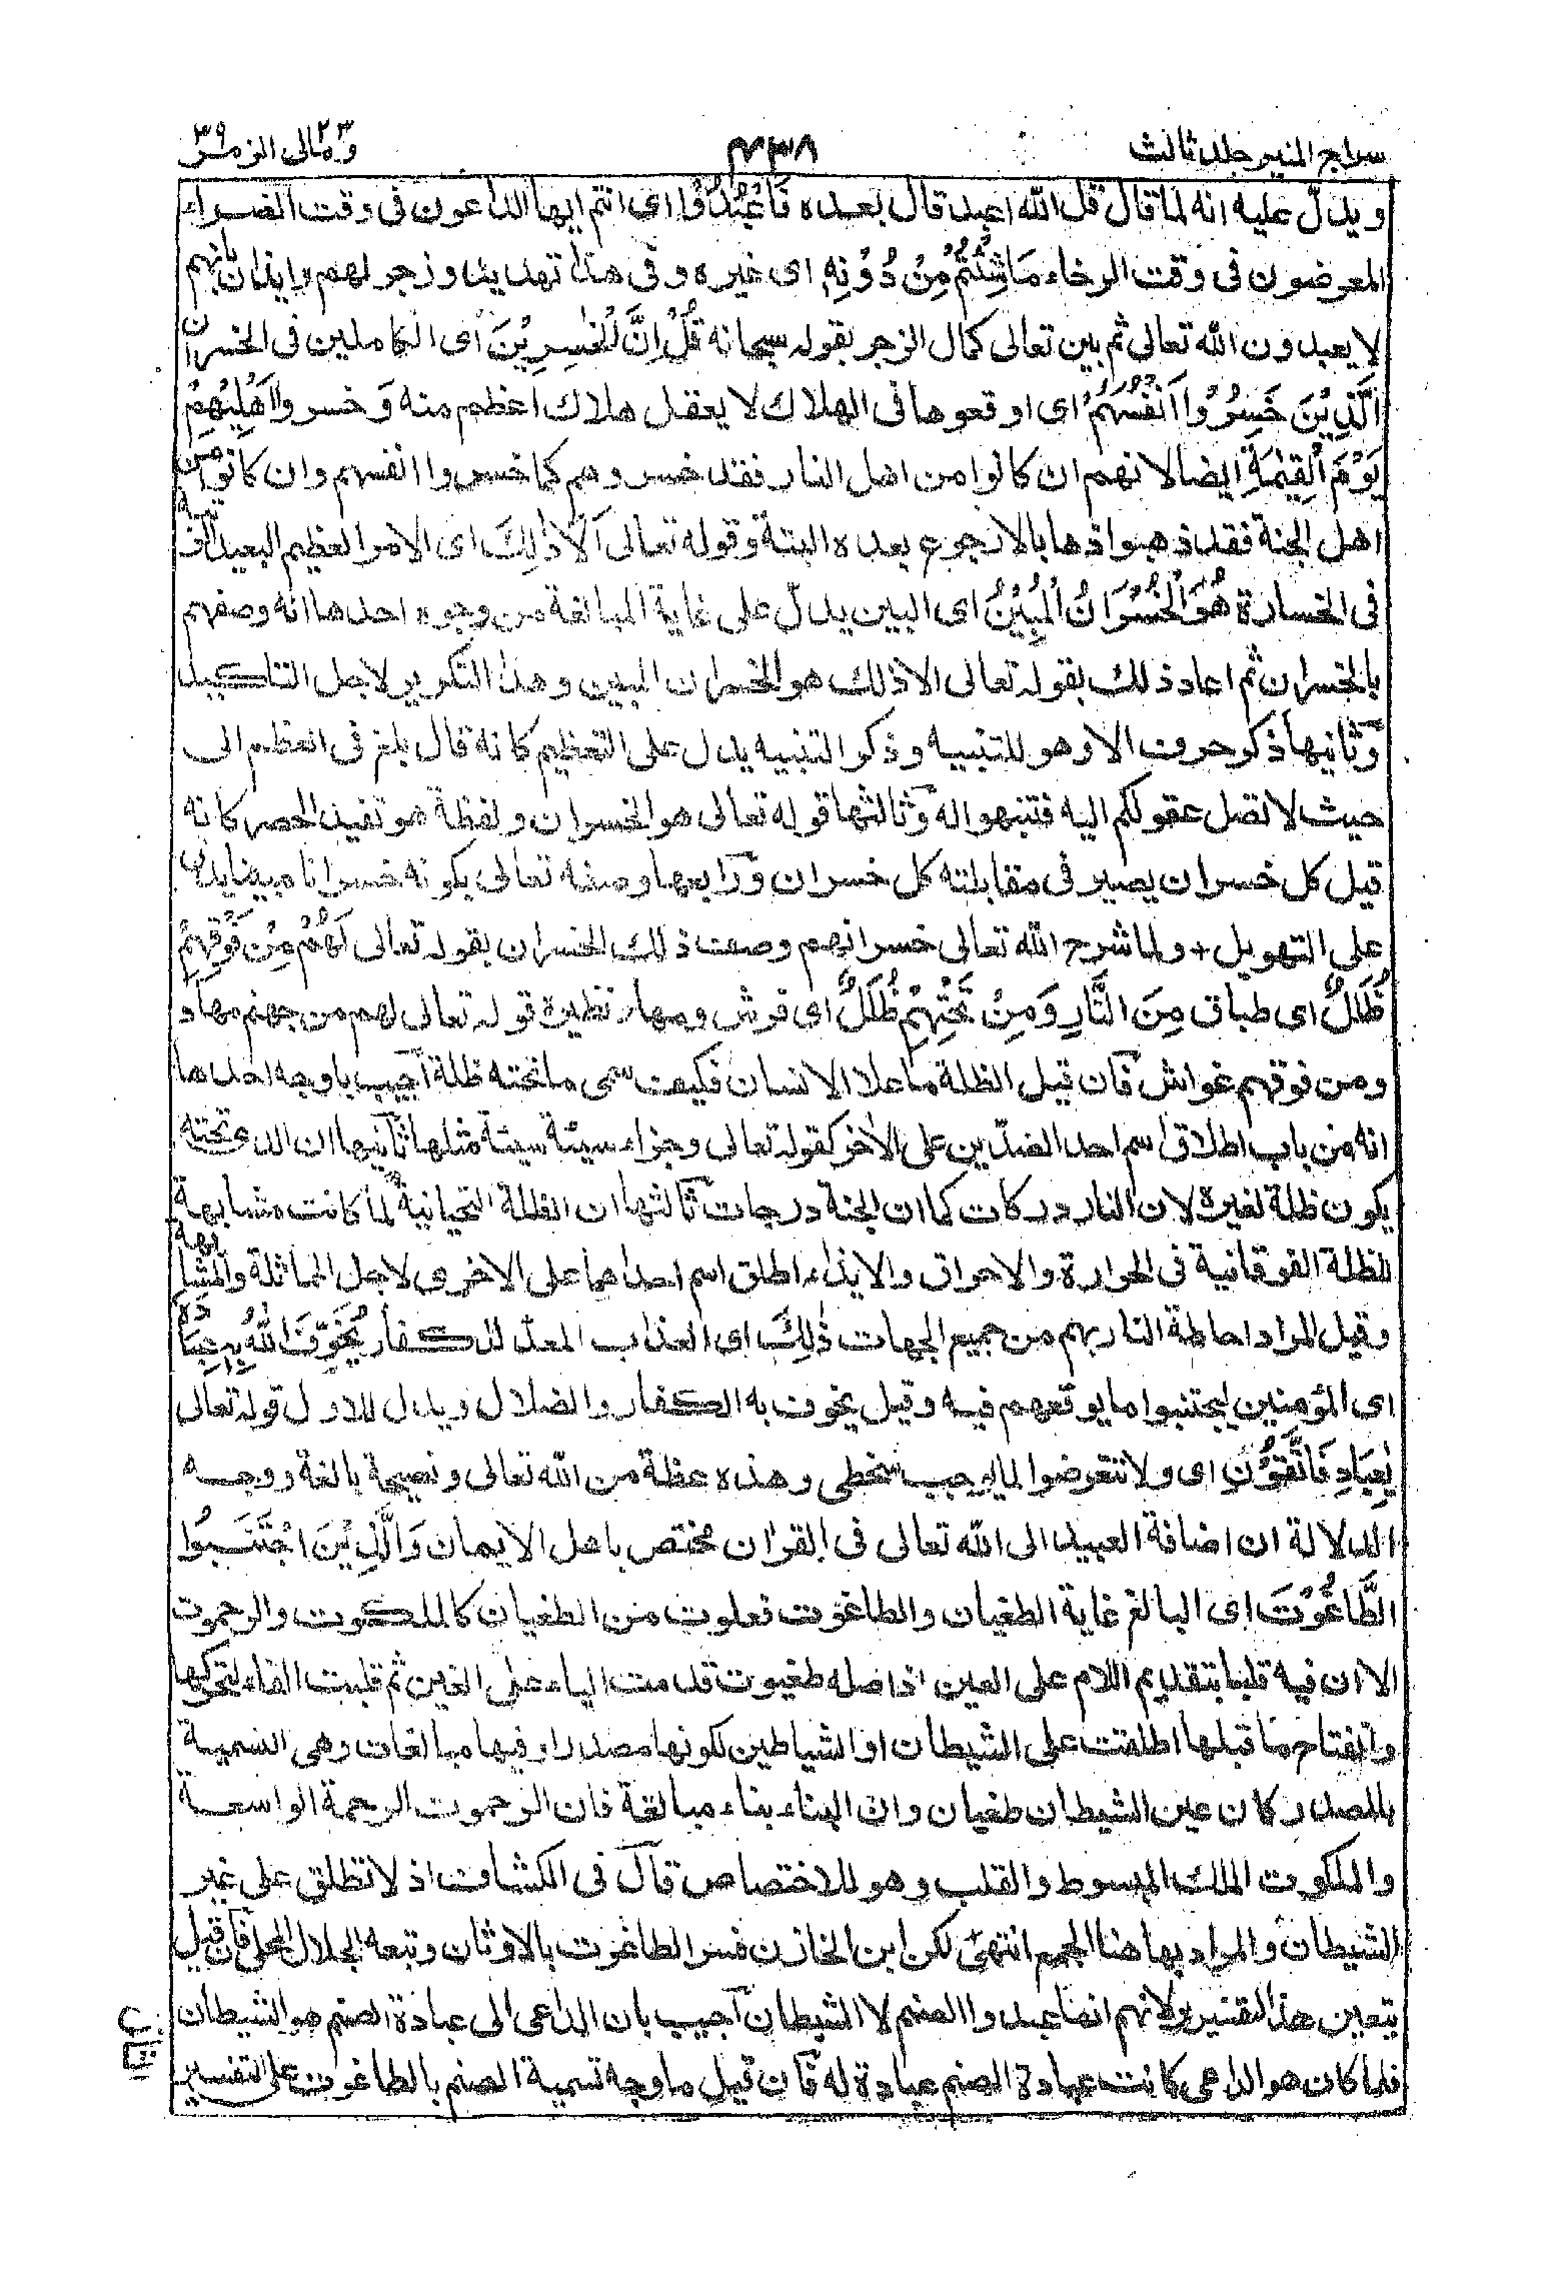 سراج المنير جلد ثالث
٤٣٨
ومالى ٢٣ الزمر ٣٩
ويدل عليه انه لما قال قل الله اعبد قال بعده فَاعْبُدُوْا اى انتم ايها الداعون فى وقت الضراء
المعرضون فى وقت الرخاء مَا شِئْتُمْ مِنْ دُوْنِهٖ اى غيره وفى هذا تهديد وزجر لهم وايذان بانهم
لا يعبدون الله تعالى ثم بين تعالى كمال الزجر بقوله سبحانه قُلْ اِنَّ الْخٰسِرِيْنَ اى الكاملين فى الخسران
الَّذِيْنَ خَسِرُوْا اَنْفُسَهُمْ اى اوقعوها فى الهلاك لا يعقل هلاك اعظم منه وَ خسروا اَهْلِيْهِمْ
يَوْمَ الْقِيٰمَةِ ايضا لانهم ان كانوا من اهل النار فقد خسروهم كما خسروا انفسهم وان كانوا من
اهل الجنة فقد ذهبوا ذهابا لا رجوع بعده البتة وقوله تعالى اَلَا ذٰلِكَ اى الامر العظيم البعيد الرتبة
فى الخسارة هُوَ الْخُسْرَانُ الْمُبِيْنُ اى البين يدل على غاية المبالغة من وجوه احدها انه وصفهم
بالخسران ثم اعاد ذلك بقوله تعالى الا ذلك هو الخسران المبين وهذا التكوير لاجل التاكيد
وثانيها ذكر حرف الا وهو للتنبيه وذكر التنبيه يدل على التعظيم كانه قال بلغ فى العظم الى
حيث لا تصل عقولكم اليه فتنبهوا له وثالثها قوله تعالى هو الخسران ولفظة هو تفيد الحصر كانه
قيل كل خسران يصير فى مقابلته كل خسران ورابعها وصفه تعالى بكونه خسرانا مبينا يدل
على التهويل + ولما شرح الله تعالى خسرانهم وصف ذلك الخسران بقوله تعالى لَهُمْ مِنْ فَوْقِهِمْ
ظُلَلٌ اى طباق مِنَ النَّارِ وَمِنْ تَحْتِهِمْ ظُلَلٌ اى فرش ومهاد نظيره قوله تعالى لهم من جهنم مهاد
ومن فوقهم غواش فان قيل الظلة ما علا الانسان فكيف سمى ما تحته ظلة اجيب باوجه احدها
انه من باب اطلاق اسم احد الضدين على الاخر كقوله تعالى وجزاء سيئة سيئة مثلها ثانيها ان الذى تحته
يكون ظلة لغيره لان النار دركات كما ان الجنة درجات ثالثها ان الظلة التحتانية لما كانت مشابهة
للظلة الفوقانية فى الحرارة والاحراق والايذاء اطلق اسم احداهما على الاخرى لاجل المماثلة والمشابهة
وقيل المراد احاطة النار بهم من جميع الجهات ذٰلِكَ اى العذاب المعد للكفار يُخَوِّفُ اللهُ بِهٖ عِبَادَهٗ
اى المؤمنين ليجتنبوا ما يوقعهم فيه وقيل يخوف به الكفار والضلال ويدل للاول قوله تعالى
يٰعِبَادِ فَاتَّقُوْنِ اى ولا تتعرضوا لما يوجب سخطى وهذه عظة من الله تعالى ونصيحة بالغة ووجه
الدلالة ان اضافة العبيد الى الله تعالى فى القران مختص باهل الايمان وَالَّذِيْنَ اجْتَنَبُوا
الطَّاغُوْتَ اى البالغ غاية الطغيان والطاغوت فعلوت من الطغيان كالملكوت والرحموت
الا ان فيه قلبا بتقديم اللام على العين اذ اصله طغيوت قدمت الياء على الغين ثم قلبت الفاء لتحركها
وانفتاح ما قبلها اطلقت على الشيطان او الشياطين لكونها مصدرا وفيها مبالغات وهى التسمية
بالمصدر كان عين الشيطان طغيان وان البناء بناء مبالغة فان الرحموت الرحمة الواسعة
والملكوت الملك المبسوط والقلب وهو للاختصاص قال فى الكشاف اذ لا تطلق على غير
الشيطان والمراد بها هنا الجمع انتهى لكن ابن الخازن فسر الطاغوت بالاوثان وتبعه الجلال المحلى فان قيل
يتعين هذا التفسير لانهم انما عبدوا الصنم لا الشيطان اجيب بان الداعى الى عبادة الصنم هو الشيطان
فلما كان هو الداعى كانت عبادة الصنم عبادة له فان قيل ما وجه تسمية الصنم بالطاغوت على التفسير